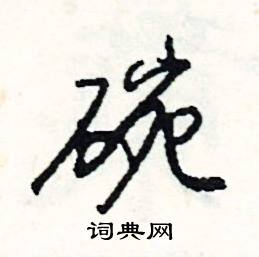 碗
词典网